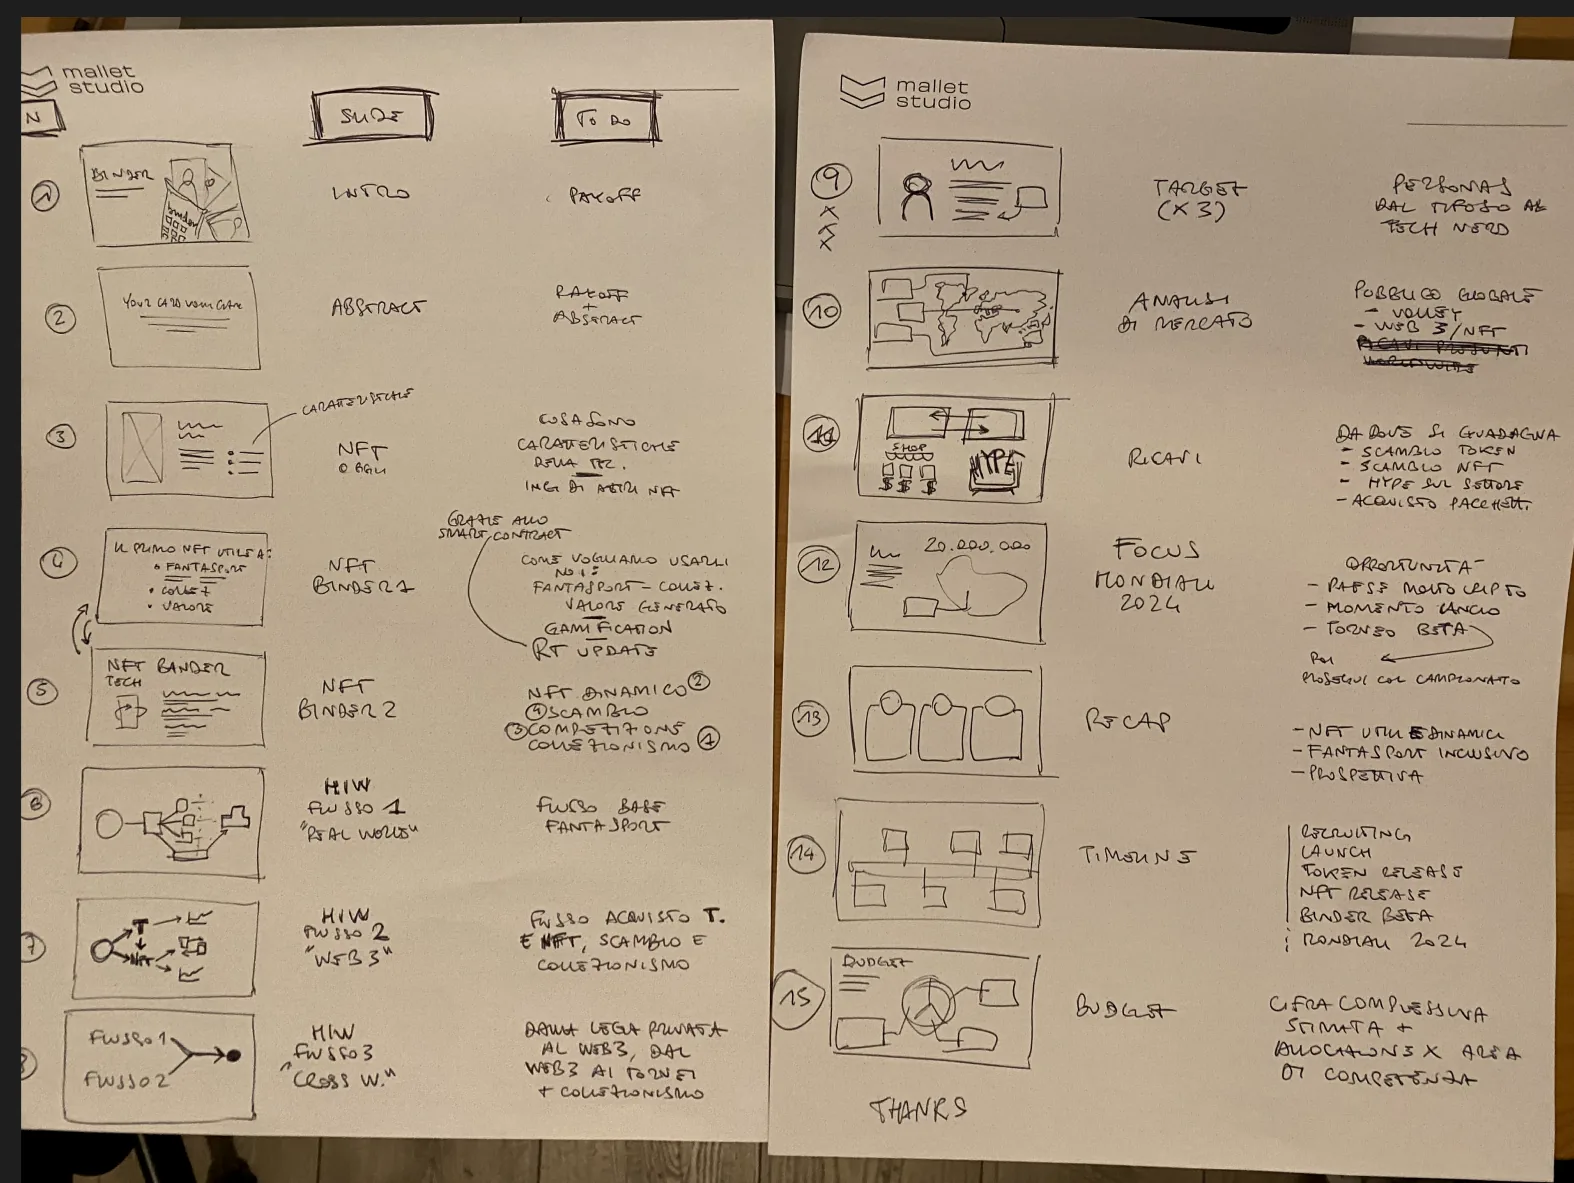 mallet
studio
N
SLIDE
TO DO
1
BINDER
binder
INTRO
PAYOFF
2
ABSTRACT
PAYOFF
+
ABSTRACT
3
CARATTERISTICHE
NFT
COSA SONO
CARATTERISTICHE
DELLA TEC.
DI ALTRI NFT
4
IL PRIMO NFT UTILE A:
• FANTASPORT
• COLLEZ
• VALORE
NFT
BINDER 1
GRAZIE ALLO
SMART CONTRACT
COME VOGLIAMO USARLI
NOI:
FANTASPORT - COLLEZ.
VALORE GENERATO
GAMIFICATION
RT UPDATE
5
NFT BANDER
TECH
NFT
BINDER 2
NFT DINAMICO 2
4 SCAMBIO
3 COMPETIZIONE
COLLEZIONISMO 1
6
HIW
FLUSSO 1
"REAL WORLD"
FLUSSO BASE
FANTASPORT
7
T
NFT
HIW
FLUSSO 2
"WEB 3"
FLUSSO ACQUISTO T.
E NFT, SCAMBIO E
COLLEZIONISMO
8
FLUSSO 1
FLUSSO 2
HIW
FLUSSO 3
"CROSS W."
DALLA LEGA PRIVATA
AL WEB3, DAL
WEB3 AI TORNEI
+ COLLEZIONISMO
mallet
studio
9
x
x
x
TARGET
(x3)
PERSONAS
DAL TIFOSO AL
TECH NERD
10
ANALISI
DI MERCATO
PUBBLICO GLOBALE
- VOLLEY
- WEB 3/NFT
11
SHOP
$ $ $
HYPE
RICAVI
DA DOVE SI GUADAGNA
- SCAMBIO TOKEN
- SCAMBIO NFT
- HYPE SUL SETTORE
- ACQUISTO PACCHETTI
12
20.000.000
FOCUS
MONDIALI
2024
OPPORTUNITA'
- PAESE MOLTO CRIPTO
- MOMENTO LANCIO
- TORNEO BETA
POI
PROSEGUI COL CAMPIONATO
13
RECAP
- NFT UTILI E DINAMICI
- FANTASPORT INCLUSIVO
- PROSPETTIVA
14
TIMELINE
RECRUITING
LAUNCH
TOKEN RELEASE
NFT RELEASE
BINDER BETA
MONDIALI 2024
15
BUDGET
BUDGET
CIFRA COMPLESSIVA
STIMATA +
ALLOCAZIONE X AREA
DI COMPETENZA
THANKS